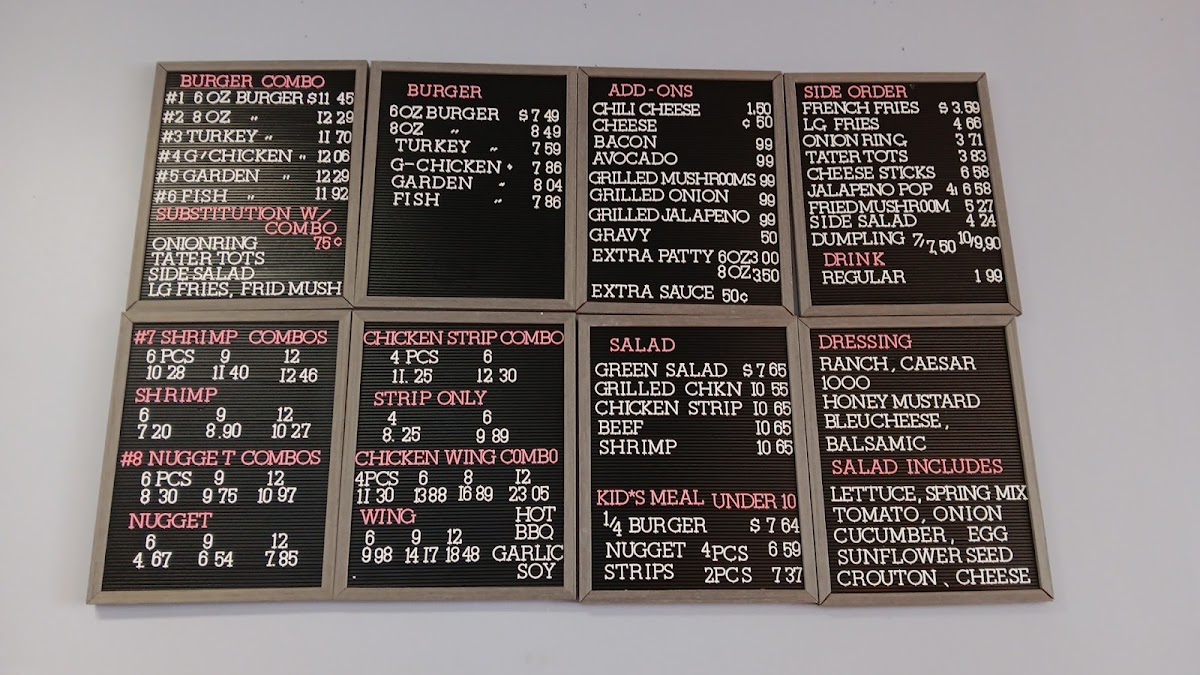 BURGER COMBO
#1 6 OZ BURGER $11 45
#2 8 OZ " 12 29
#3 TURKEY " 11 70
#4 G/CHICKEN " 12 06
#5 GARDEN " 12 29
#6 FISH " 11 92
SUBSTITUTION W/
COMBO
75¢
ONIONRING
TATER TOTS
SIDE SALAD
LG FRIES, FRID MUSH
BURGER
6OZ BURGER $ 7 49
8OZ " 8 49
TURKEY " 7 59
G-CHICKEN " 7 86
GARDEN " 8 04
FISH " 7 86
ADD-ONS
CHILI CHEESE 1,50
CHEESE ¢ 50
BACON 99
AVOCADO 99
GRILLED MUSHROOMS 99
GRILLED ONION 99
GRILLED JALAPENO 99
GRAVY 50
EXTRA PATTY 6OZ 3 00
8OZ 3,50
EXTRA SAUCE 50¢
SIDE ORDER
FRENCH FRIES $ 3.59
LG FRIES 4 66
ONION RING 3 71
TATER TOTS 3 83
CHEESE STICKS 6 58
JALAPENO POP 4/ 6 58
FRIED MUSHROOM 5 27
SIDE SALAD 4 24
DUMPLING 7/7,50 10/9,90
DRINK
REGULAR 1 99
#7 SHRIMP COMBOS
6 PCS 9 12
10 28 11 40 12 46
SHRIMP
6 9 12
7 20 8.90 10 27
#8 NUGGET COMBOS
6 PCS 9 12
8 30 9 75 10 97
NUGGET
6 9 12
4.67 6 54 7.85
CHICKEN STRIP COMBO
4 PCS 6
11. 25 12 30
STRIP ONLY
4 6
8. 25 9 89
CHICKEN WING COMBO
4PCS 6 8 12
11 30 13 88 16 89 23 05
WING
6 9 12
9 98 14 17 18 48
HOT
BBQ
GARLIC
SOY
SALAD
GREEN SALAD $ 7 65
GRILLED CHKN 10 55
CHICKEN STRIP 10 65
BEEF 10 65
SHRIMP 10 65
KID*S MEAL UNDER 10
1/4 BURGER $ 7 64
NUGGET 4PCS 6 59
STRIPS 2PCS 7 37
DRESSING
RANCH, CAESAR
1000
HONEY MUSTARD
BLEUCHEESE,
BALSAMIC
SALAD INCLUDES
LETTUCE, SPRING MIX
TOMATO, ONION
CUCUMBER, EGG
SUNFLOWER SEED
CROUTON, CHEESE